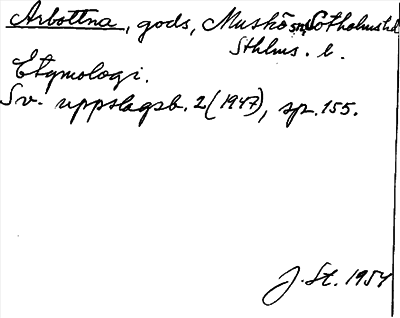 Arbottna, gods, Muskö sn, Sotholms hd
Sthlms. l.
Etymologi.
Sv. uppslagsb. 2 (1947), sp. 155.
J. St. 1954